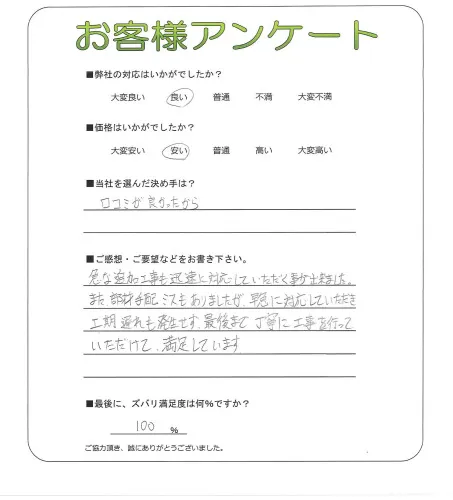 お客様アンケート
■弊社の対応はいかがでしたか？
大変良い 良い 普通 不満 大変不満
■価格はいかがでしたか？
大変安い 安い 普通 高い 大変高い
■当社を選んだ決め手は？
口コミが良かったから
■ご感想・ご要望などをお書き下さい。
急な追加工事も迅速に対応していただく事が出来ました。
また部材手配ミスもありましたが、早急に対応していただき
工期遅れも発生せず、最後まで丁寧に工事を行って
いただけて、満足しています
■最後に、ズバリ満足度は何％ですか？
100 ％
ご協力頂き、誠にありがとうございました。